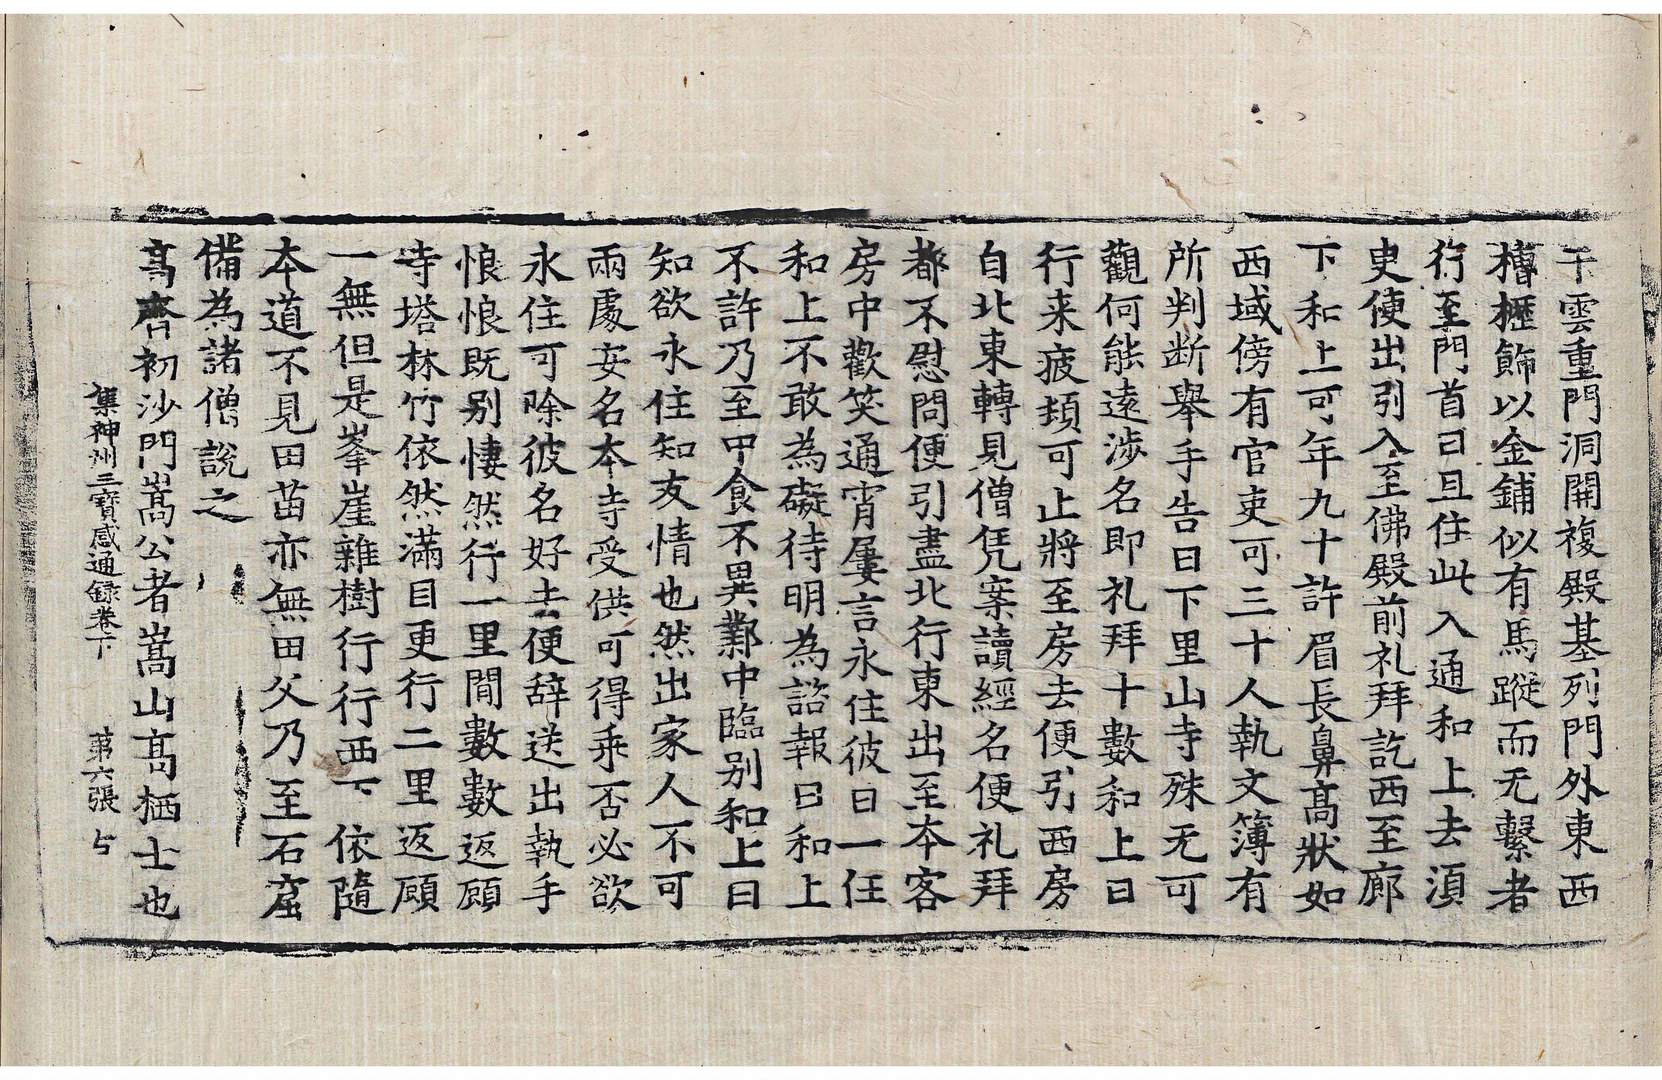 干雲重門洞開複殿基列門外東西
槽櫪飾以金鋪似有馬蹤而无繫者
行至門首曰且住此入通和上去須
吏使出引入至佛殿前礼拜訖西至廊
下和上可年九十許眉長鼻髙狀如
西域傍有官吏可三十人執文簿有
所判断舉手告曰下里山寺殊无可
觀何能遠涉名即礼拜十數和上曰
行来疲頓可止將至房去便引西房
自北東轉見僧凭案讀經名便礼拜
都不慰問便引盡北行東出至本客
房中歡笑通宵屢言永住彼曰一任
和上不敢為礙待明為諮報曰和上
不許乃至中食不異鄴中臨别和上曰
知欲永住知友情也然出家人不可
兩處安名本寺受供可得乘否必欲
永住可除彼名好去便辞送出執手
恨恨既别悽然行一里間數數返顧
寺塔林竹依然滿目更行二里返顧
一無但是峯崖雜樹行行西下依隨
本道不見田苗亦無田父乃至石窟
備為諸僧說之
髙齊初沙門嵩公者嵩山髙栖士也
集神州三寶感通録卷下 苐六張 与